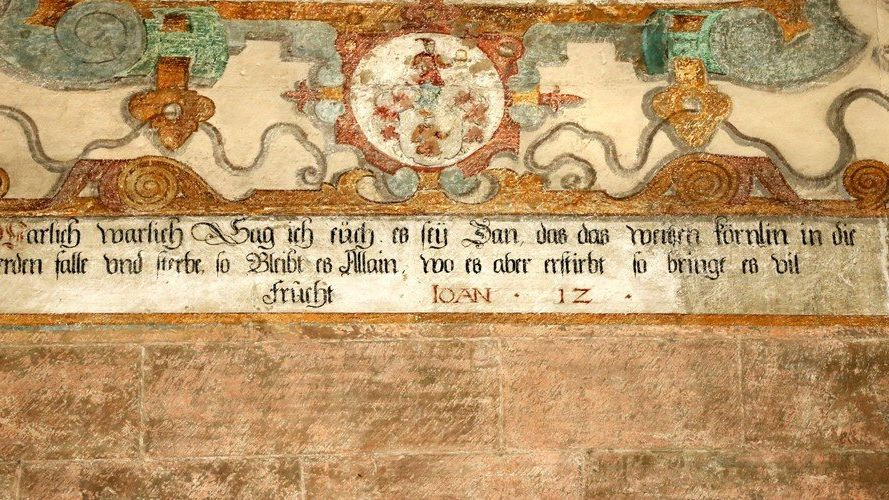 Warlich warlich Sag ich eüch. es seÿ Dan, das das weitzen körnlin in die
erden falle vnd sterbe, so Bleibt es Allain, wo es aber erstirbt so bringt es vil
frücht IOAN · 12 ·